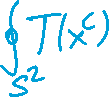 ∮_{S²} T(x^c)